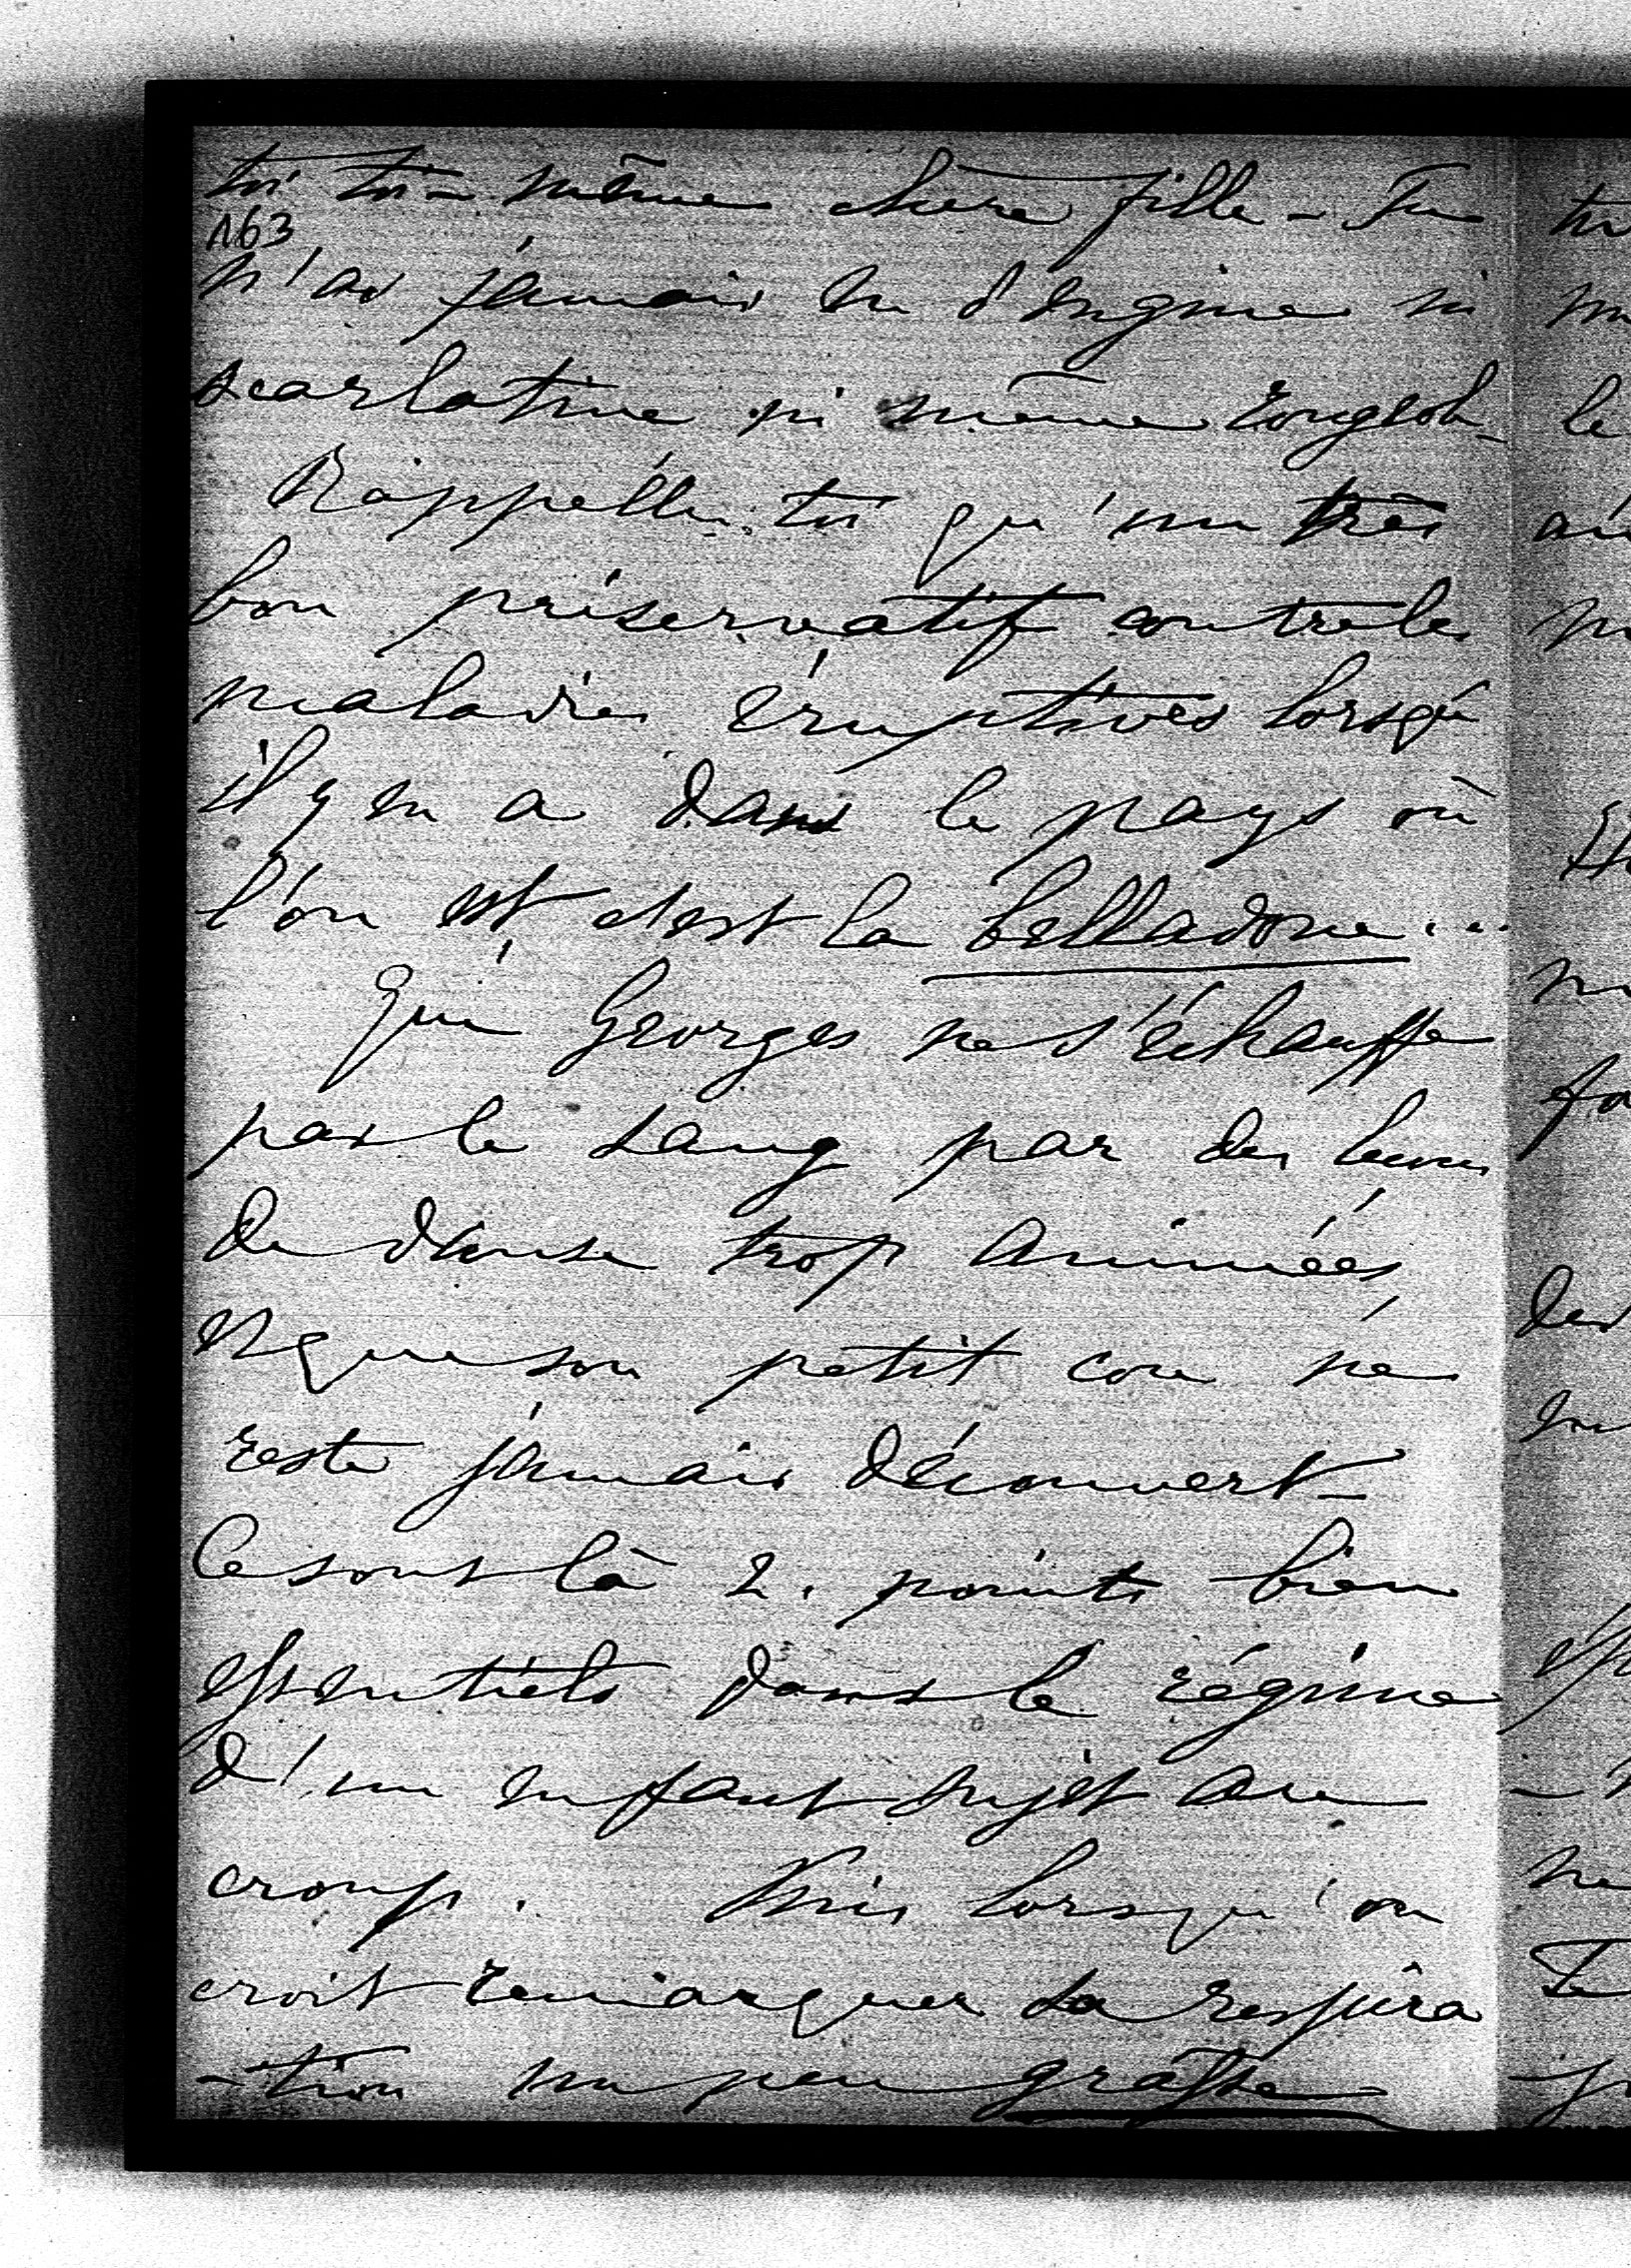 toi toi-même chère fille - Tu
163
n'as jamais eu d'angine ni
scarlatine ni même rougeole -
Rappelle-toi qu'un très
bon préservatif contre les
maladies éruptives lorsqu'
il y en a dans le pays où
l'on est c'est la belladone...
Que Georges ne s'échauffe
pas le sang par des leçons
de danse trop animées
et que son petit cou ne
reste jamais découvert -
Ce sont là 2. points bien
essentiels dans le régime
d'un enfant sujet au
croup. Puis lorsqu'on
croit remarquer sa respira
-tion un peu grasse